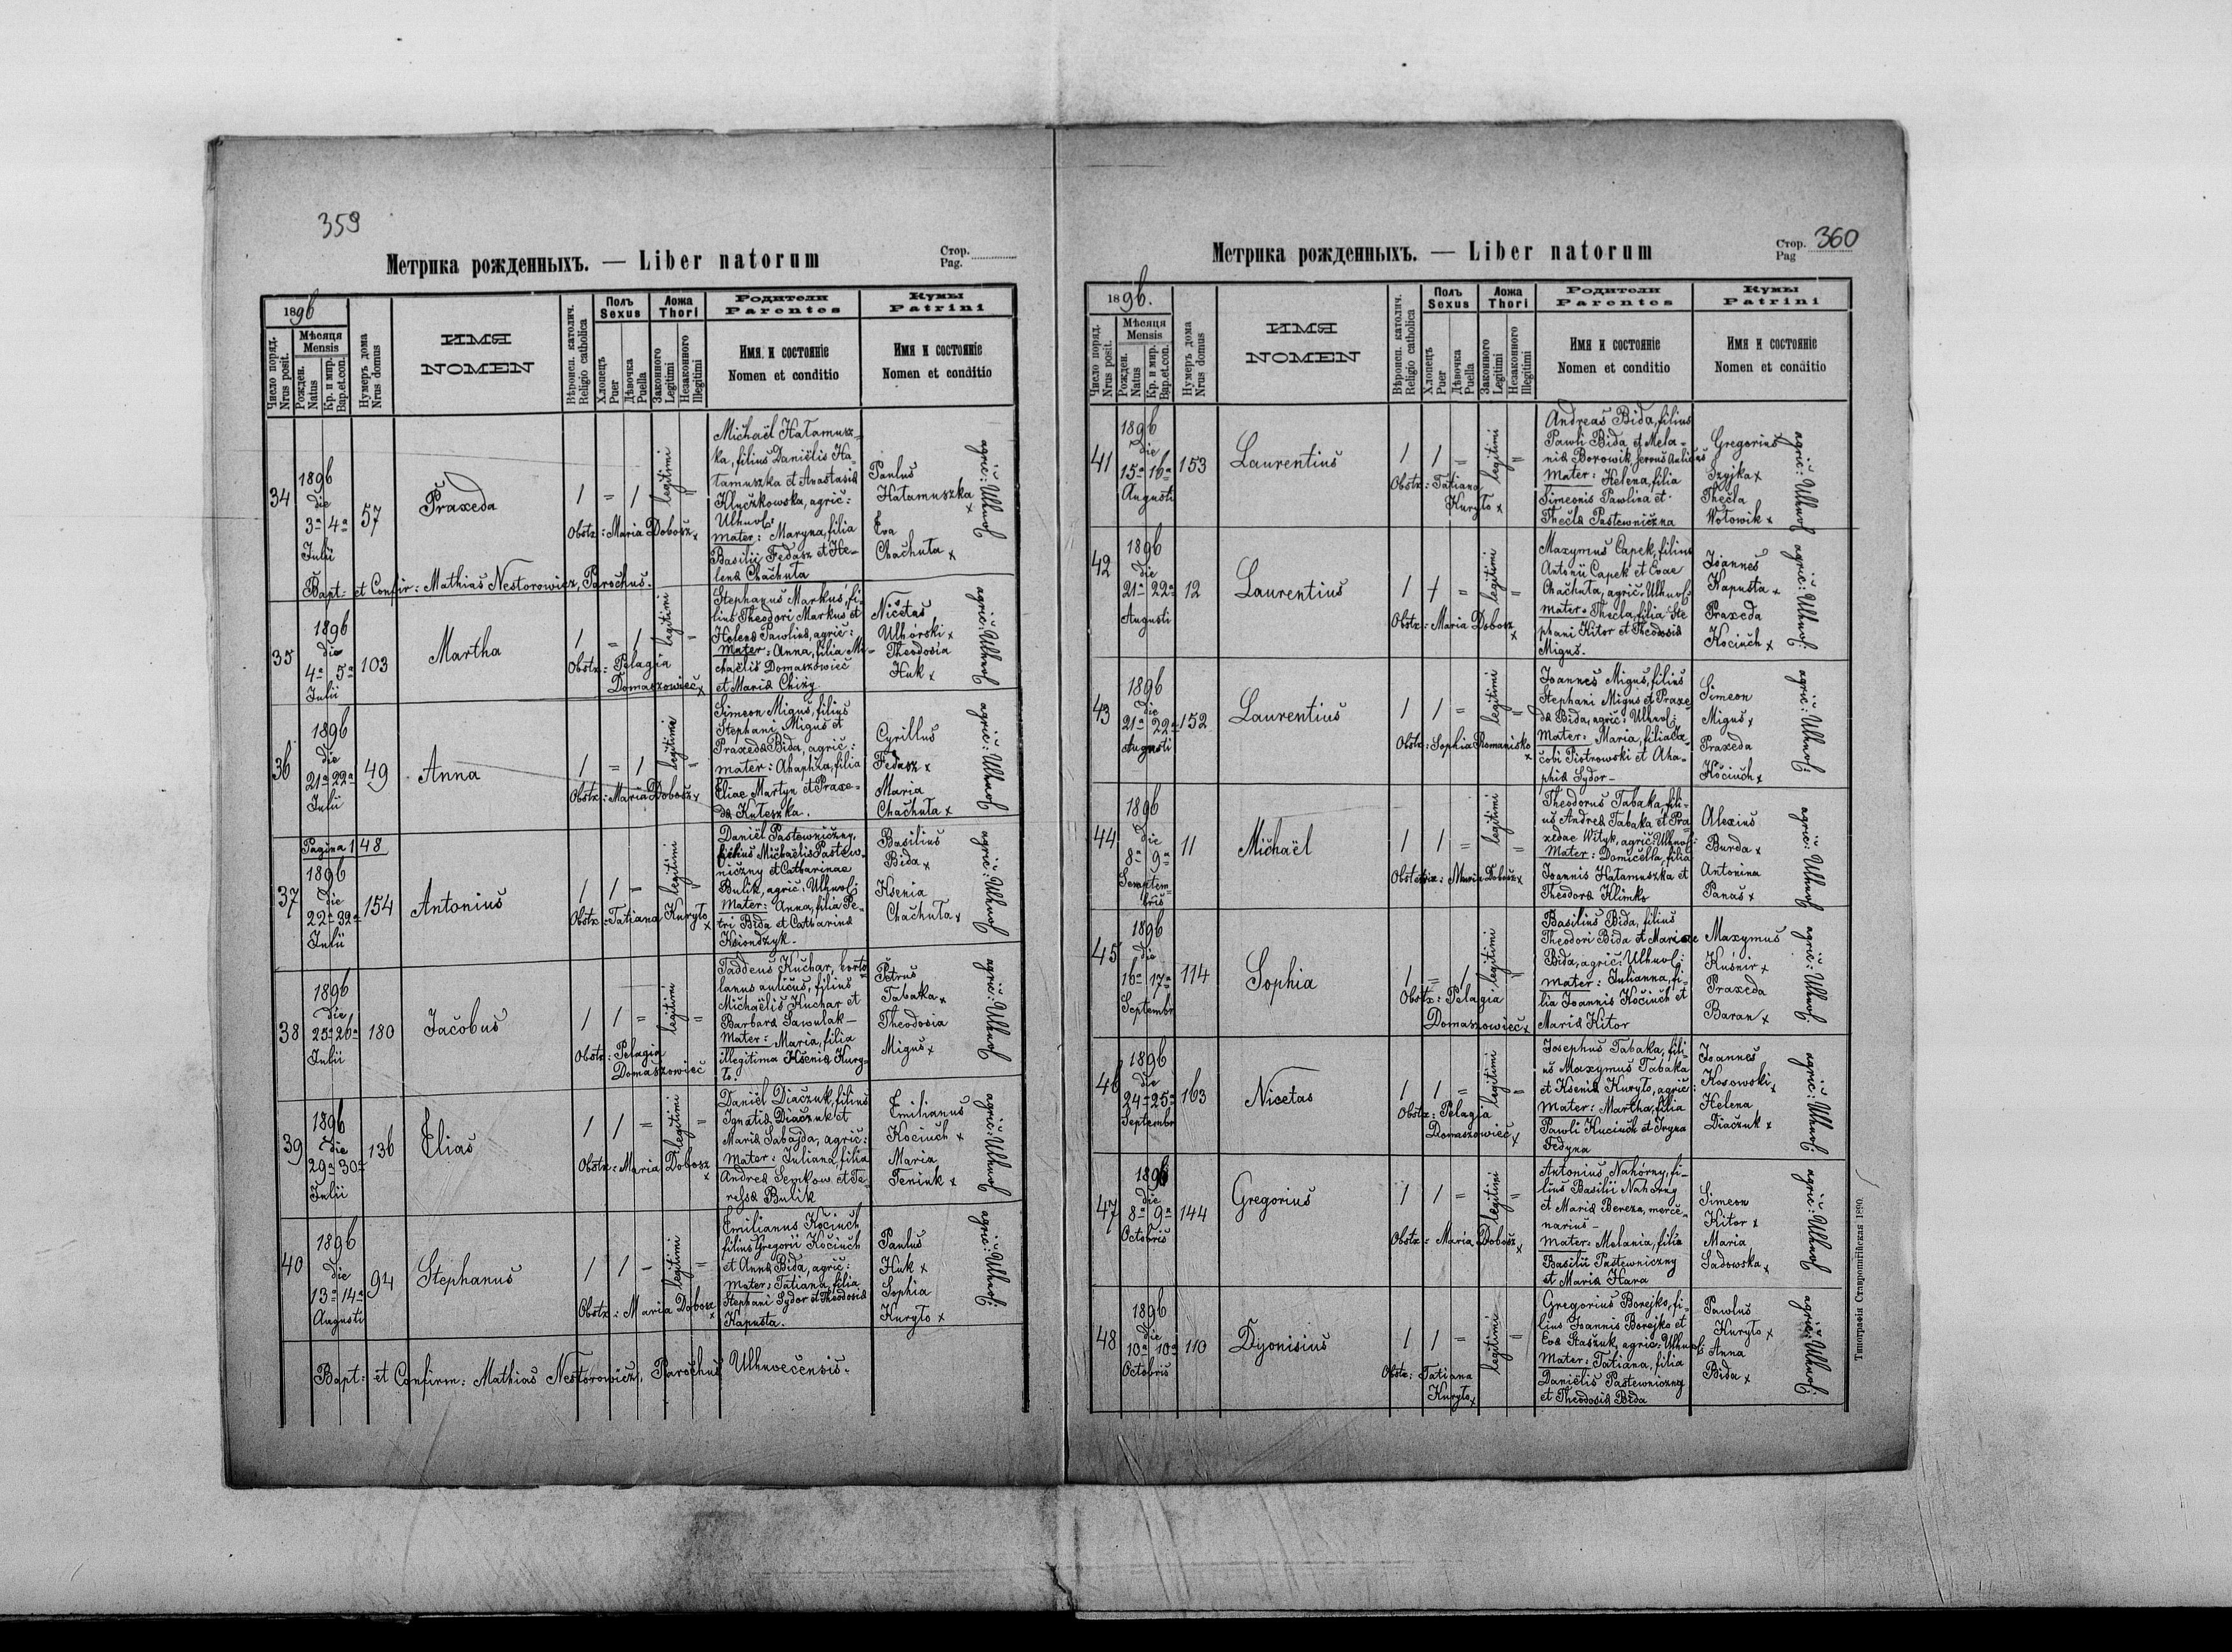 359
Метрика рожденныхъ. — Liber natorum
Стор.
Pag.
1896
Число поряд.
Nrus posit.
Мѣсяця
Mensis
Рожден.
Natus
Кр. и мир.
Bap.et.con.
Нумеръ дома
Nrus domus
ИМЯ
NOMEN
Вѣроисп. католич.
Religio catholica
Полъ
Sexus
Хлопецъ
Puer
Дѣвочка
Puella
Ложа
Thori
Законного
Legitimi
Незаконного
Illegitimi
Родители
Parentes
Имя и состояніе
Nomen et conditio
Кумы
Patrini
Имя и состояніе
Nomen et conditio
34
1896
die
3ª 4ª
Julii
57
Praxeda
1 = 1 legitimi =
Obstx: Maria Dobosz x
Michaël Hatamusz-
ka, filius Daniëlis Ha-
tamuszka et Anastasia
Kluczkowska, agric:
Uhnov:
Mater: Maryna, filia
Basilii Fedasz et He-
lena Chachuta
Paulus
Hatamuszka x
Eva
Chachuta x
agric: Uhnov
Bapt: et Confir: Mathias Nestorowicz, Parochus.
35
1896
die
4ª 5ª
Julii
103
Martha
1 = 1 legitimi =
Obstx: Pelagia
Domaszowiec x
Stephanus Markus, fi-
lius Theodori Markus et
Helena Pawlina, agric:
Mater: Anna, filia Mi-
chaëlis Domaszowiec
et Maria Chizy
Nicetas
Uhorski x
Theodosia
Huk x
agric: Uhnov
36
1896
die
21ª 22ª
Julii
49
Anna
1 = 1 legitima =
Obstx: Maria Dobosz x
Simeon Migus, filius
Stephani Migus et
Praxeda Bida, agric:
Mater: Ahaphia, filia
Eliae Martyn et Praxe-
da Kuleszka.
Cyrillus
Fedasz x
Maria
Chachuta x
agric: Uhnov
Pagina 148
37
1896
die
22ª 22ª
Julii
154
Antonius
1 1 = legitimi
Obstx: Tatiana Kuryto x
Daniël Pastewniczny,
filius Michaëlis Pastew-
niczny et Catharinae
Bulik, agric: Uhnov:
Mater: Anna, filia Pe-
tri Bida et Catharina
Ksiondzyk.
Basilius
Bida x
Ksenia
Chachuta x
agric: Uhnov
38
1896
die
25ª 26ª
Julii
180
Jacobus
1 1 = legitimi =
Obstx: Pelagia
Domaszowiec
Taddeus Kuchar, horto-
lanus aulicus, filius
Michaëlis Kuchar et
Barbara Sawulak —
Mater: Maria, filia
illegitima Ksenia Kury-
to.
Petrus
Tabaka x
Theodosia
Migus x
agric: Uhnov
39
1896
die
29ª 30ª
Julii
136
Elias
1 1 = legitimi =
Obstx: Maria Dobosz x
Daniël Diaczuk, filius
Ignatia Diaczuk et
Maria Sabajda, agric:
Mater: Juliana, filia
Andrea Senkow et Te-
ressa Bulik
Emilianus
Kociuch x
Maria
Feniuk x
agric: Uhnov
40
1896
die
13ª 14ª
Augusti
94
Stephanus
1 1 = legitimi =
Obstx: Maria Dobosz x
Emilianus Kociuch
filius Gregorii Kociuch
et Anna Bida, agric:
Mater: Tatiana, filia
Stephani Sydor et Theodosia
Kapusta.
Paulus
Huk x
Sophia
Kuryto x
agric: Uhnov:
Bapt: et Confirm: Mathias Nestorowicz, Parochus Uhnovecensis.
Метрика рожденныхъ. — Liber natorum
Стор. 360
Pag
1896.
Число поряд.
Nrus posit.
Мѣсяця
Mensis
Рожден.
Natus
Кр. и мир.
Bap.et.con.
Нумеръ дома
Nrus domus
ИМЯ
NOMEN
Вѣроисп. католич.
Religio catholica
Полъ
Sexus
Хлопецъ
Puer
Дѣвочка
Puella
Ложа
Thori
Законного
Legitimi
Незаконного
Illegitimi
Родители
Parentes
Имя и состояніе
Nomen et conditio
Кумы
Patrini
Имя и состояніе
Nomen et conditio
41
1896
die
15ª 16ª
Augusti
153
Laurentius
1 1 = legitimi =
Obstx: Tatiana
Kuryto x
Andreas Bida, filius
Pawli Bida et Mela-
nia Borowik, servus aulicus
Mater: Helena, filia
Simeonis Pawlina et
Thecla Pastewniczna
Gregorius
Szyjka x
Thecla
Wotowik x
agric: Uhnov
42
1896
die
21ª 22ª
Augusti
12
Laurentius
1 1 = legitimi =
Obstx: Maria Dobosz x
Maxymus Capek, filius
Antonii Capek et Evae
Chachuta, agric: Uhnov:
Mater: Thecla, filia Ste
phani Kitor et Theodosia
Migus.
Joannes
Kapusta x
Praxeda
Kociuch x
agric: Uhnov:
43
1896
die
21ª 22ª
Augusti
152
Laurentius
1 1 = legitimi =
Obstx: Sophia Romanisko x
Joannes Migus, filius
Stephani Migus et Praxe-
da Bida, agric: Uhnov:
Mater: Maria, filia Ja-
cobi Piotrowski et Aha-
phia Sydor —
Simeon
Migus x
Praxeda
Kociuch x
agric: Uhnov:
44
1896
die
8ª 9ª
Septem-
bris
11
Michaël
1 1 = legitimi =
Obstetrix: Maria Dobosz x
Theodorus Tabaka, fili-
us Andrea Tabaka et Pra-
xedae Wityk, agric: Uhnov:
Mater: Domicella, filia
Joannis Hatamuszka et
Theodora Klimko
Alexius
Burda x
Antonina
Panas x
agric: Uhnov
45
1896
die
16ª 17ª
Septembr
114
Sophia
1 = 1 legitimi =
Obstx: Pelagia
Domaszowiec x
Basilius Bida, filius
Theodori Bida et Mariae
Bida, agric: Uhnov:
Mater: Julianna, fi-
lia Joannis Kociuch et
Maria Kitor
Maxymus
Kusnir x
Praxeda
Baran x
agric: Uhnov
46
1896
die
24ª 25ª
Septembr
163
Nicetas
1 1 = legitimi =
Obstx: Pelagia
Domaszowiec x
Josephus Tabaka, fili-
us Maxymus Tabaka
et Ksenia Kuryto, agric:
Mater: Martha, filia
Pawli Kuciuch et Iryna
Fedyna
Joannes
Kosowski x
Helena
Diaczuk x
agric: Uhnov:
47
1896
die
8ª 9ª
Octobris
144
Gregorius
1 1 = legitimi =
Obstx: Maria Dobosz x
Antonius Nahorny, fi-
lius Basilii Nahorny
et Maria Bereza, merce-
narius —
Mater: Melania, filia
Basilii Pastewniczny
et Maria Hara
Simeon
Kitor x
Maria
Sadowska x
agric: Uhnov
48
1896
die
10ª 10ª
Octobris
110
Dyonisius
1 1 = legitimi =
Obstx: Tatiana
Kuryto x
Gregorius Borejko, fi-
lius Joannis Borejko et
Eva Staszuk, agric: Uhnov:
Mater: Tatiana, filia
Daniëlis Pastewniczny
et Theodosia Bida
Pawlus
Kuryto x
Anna
Bida x
agric: Uhnov:
Типографія Ставропигійская 1890.